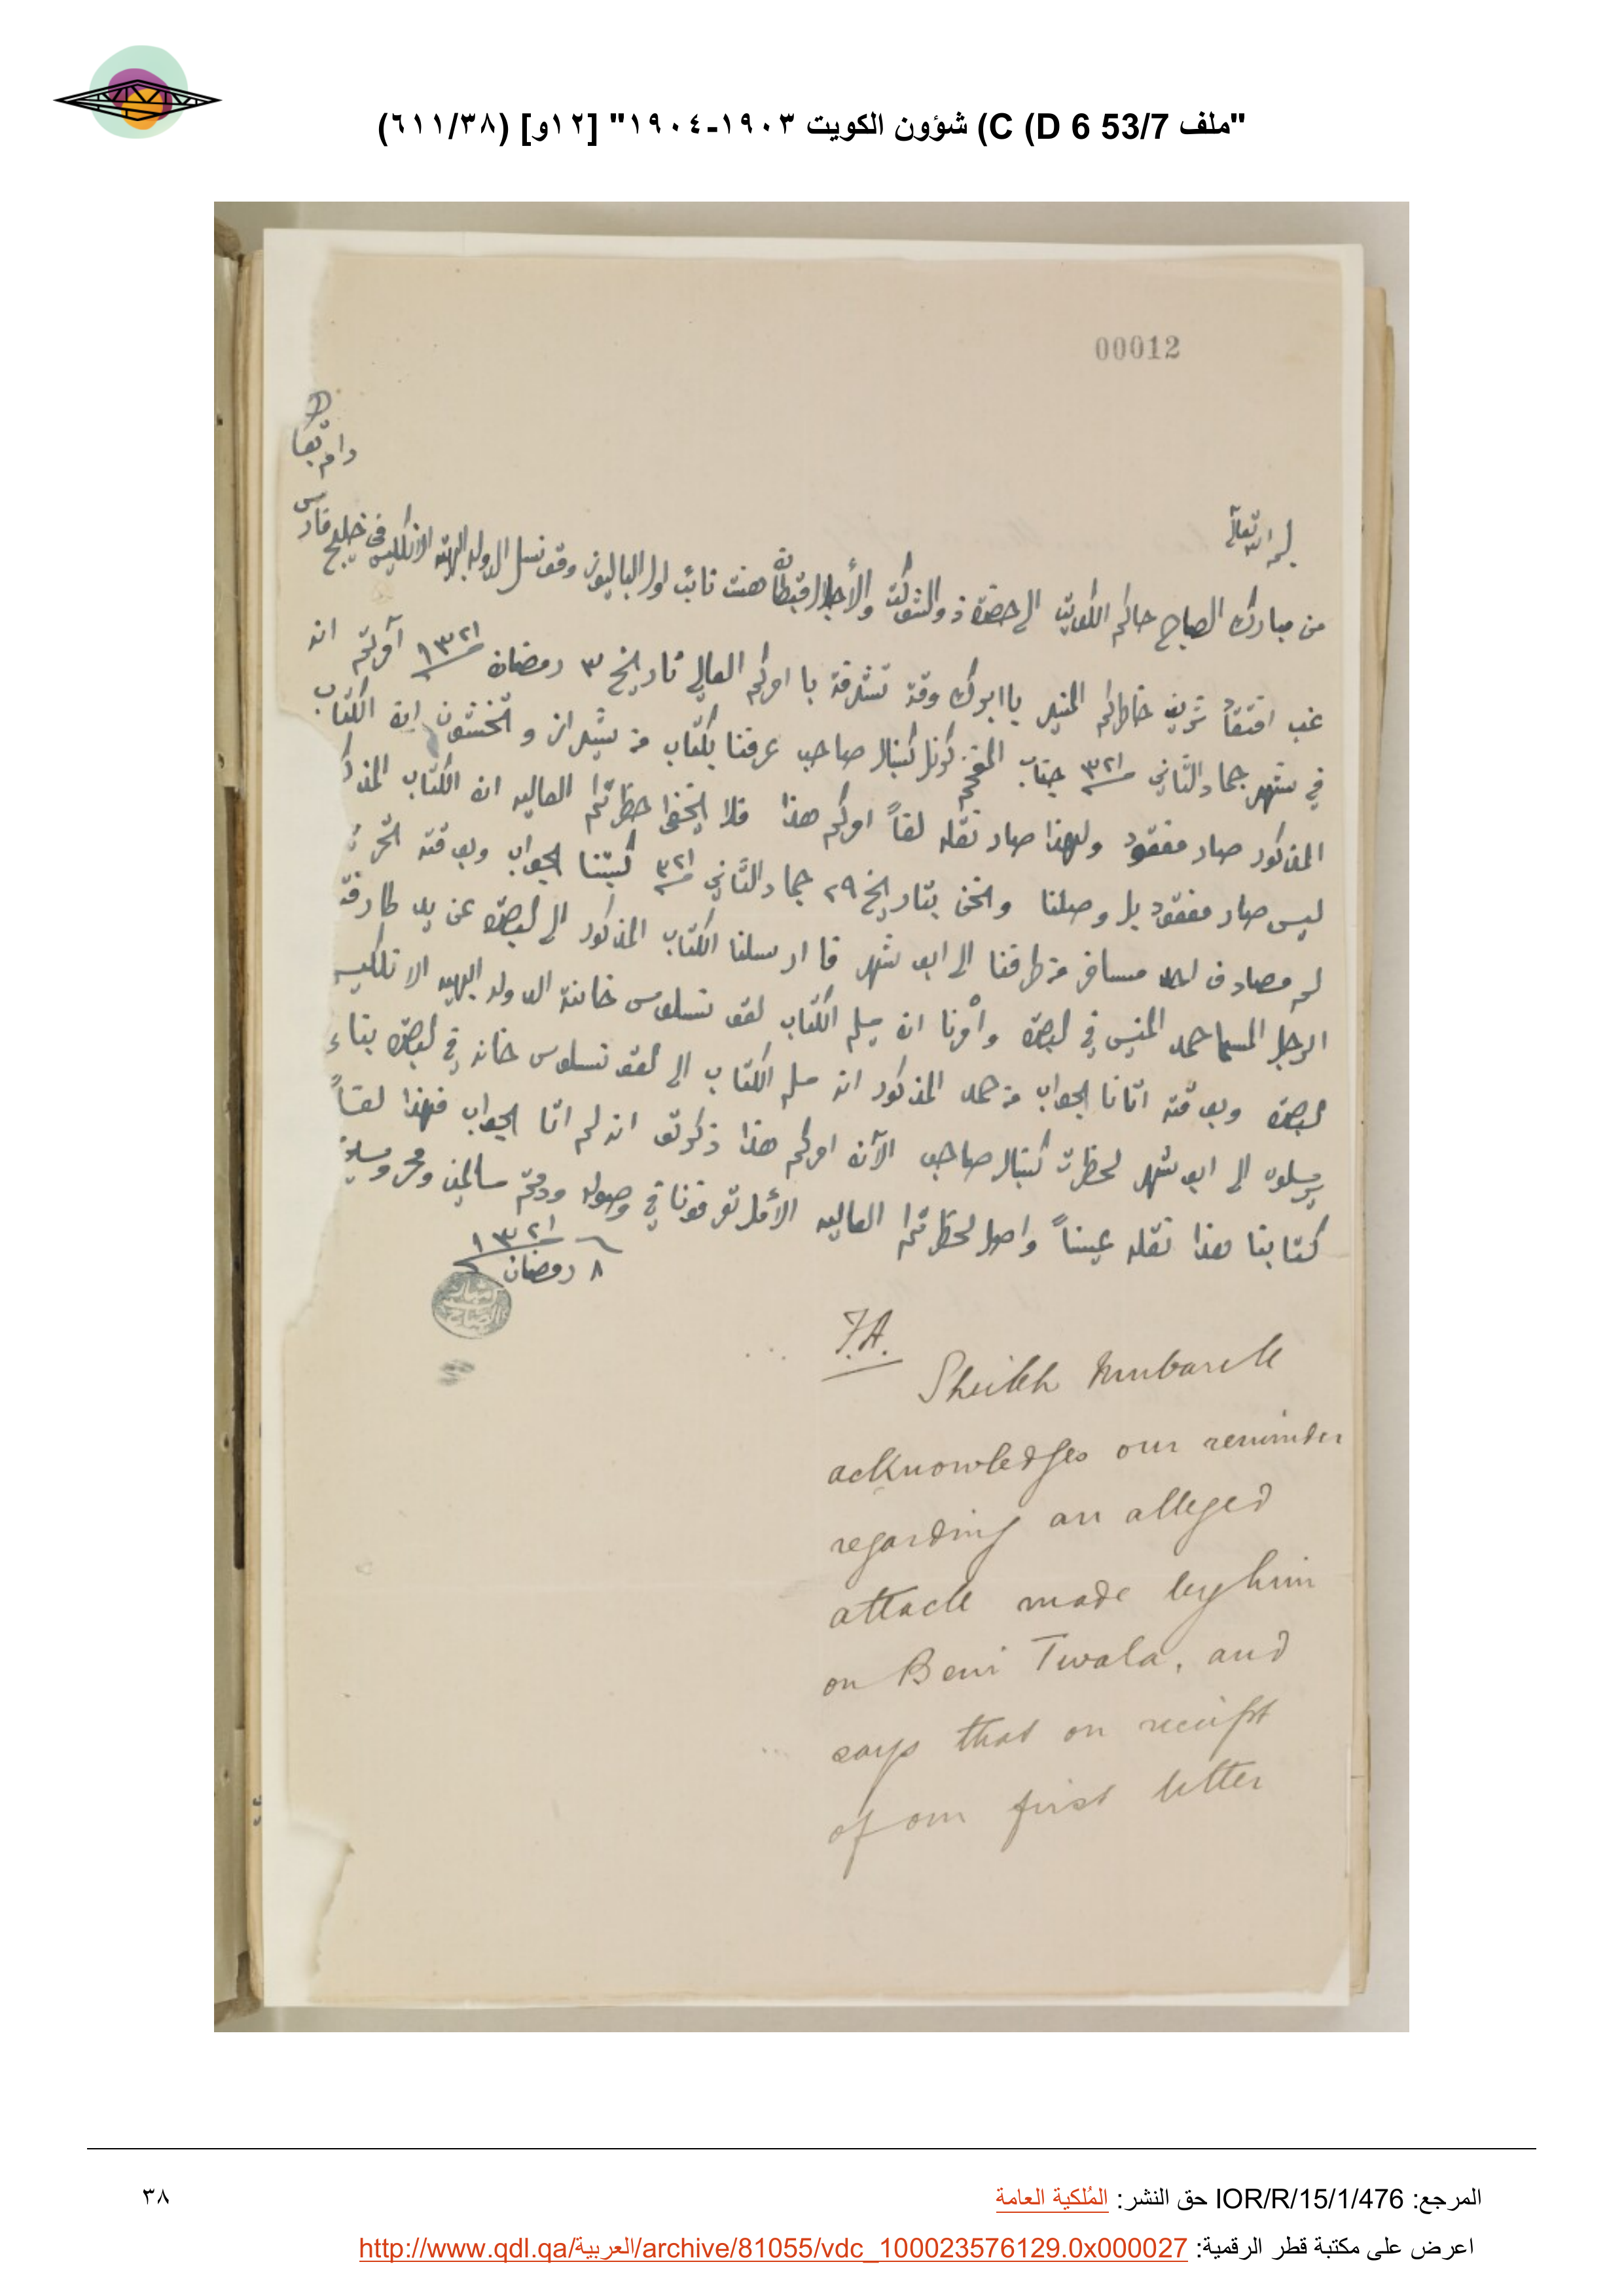 "ملف 53/7 C (D 6) شؤون الكويت ١٩٠٣-١٩٠٤" [١٢و] (٦١١/٣٨)
00012
دام بقا
بسم الله تعالى
من مبارك الصباح حاكم الكويت الى حضرة ذو الشوكت والأجلال قبطان هنت نائب اول الباليوز وقونسل الدوله البهيه الانكليس في خليج فارس
غب افتقاد شريف خاطركم المنير باابرك وقة تشرفة با امركم العالي تاريخ ٣ رمضان ١٣٢١ آمرتم انه
في شهر جماد الثاني ٣٢١ جناب المفخم كرنل كنبال صاحب عرفنا بكتاب من شيراز و تخشون ان الكتاب
المذكور صار مفقود ولهذا صار نقله لفاً امركم هذا فلا يخفا حظرتكم العاليه ان الكتاب المذكـ
ليس صار مفقود بل وصلنا ونحن بتاريخ ٢٩ جماد الثاني ٣٢١ كتبنا الجواب وبوقته
لم مصادف مسافر من طرفنا الى ابو شهر فا ارسلنا الكتاب المذكور الى البصرة عن يد طارفة
الرجل المسما حمد في البصرة وأمرنا ان يسلم الكتاب لقونسلوس خانة الدوله البهيه الانكليس
البصرة وبوقته اتانا الجواب من حمد المذكور انه سلم الكتاب الى القونسلوس خانه في البصرة بناء
يرسلوه الى ابو شهر لحظرت كنبال صاحب الآن امركم هذا ذكرتو انه لم اتا الجواب فهذا لفاً
كتابنا هذا نقله عيناً واصل لحظرتكم العاليه الأمل تعرفونا في وصوله ودمتم سالمين ومحروسين
٨ رمضان ١٣٢١
F.A.
Sheikh Mubarak
acknowledges our reminder
regarding an alleged
attack made by him
on Beni Twala, and
says that on receipt
of our first letter
المرجع: IOR/R/15/1/476 حق النشر: المُلكية العامة
٣٨
اعرض على مكتبة قطر الرقمية: http://www.qdl.qa/العربية/archive/81055/vdc_100023576129.0x000027